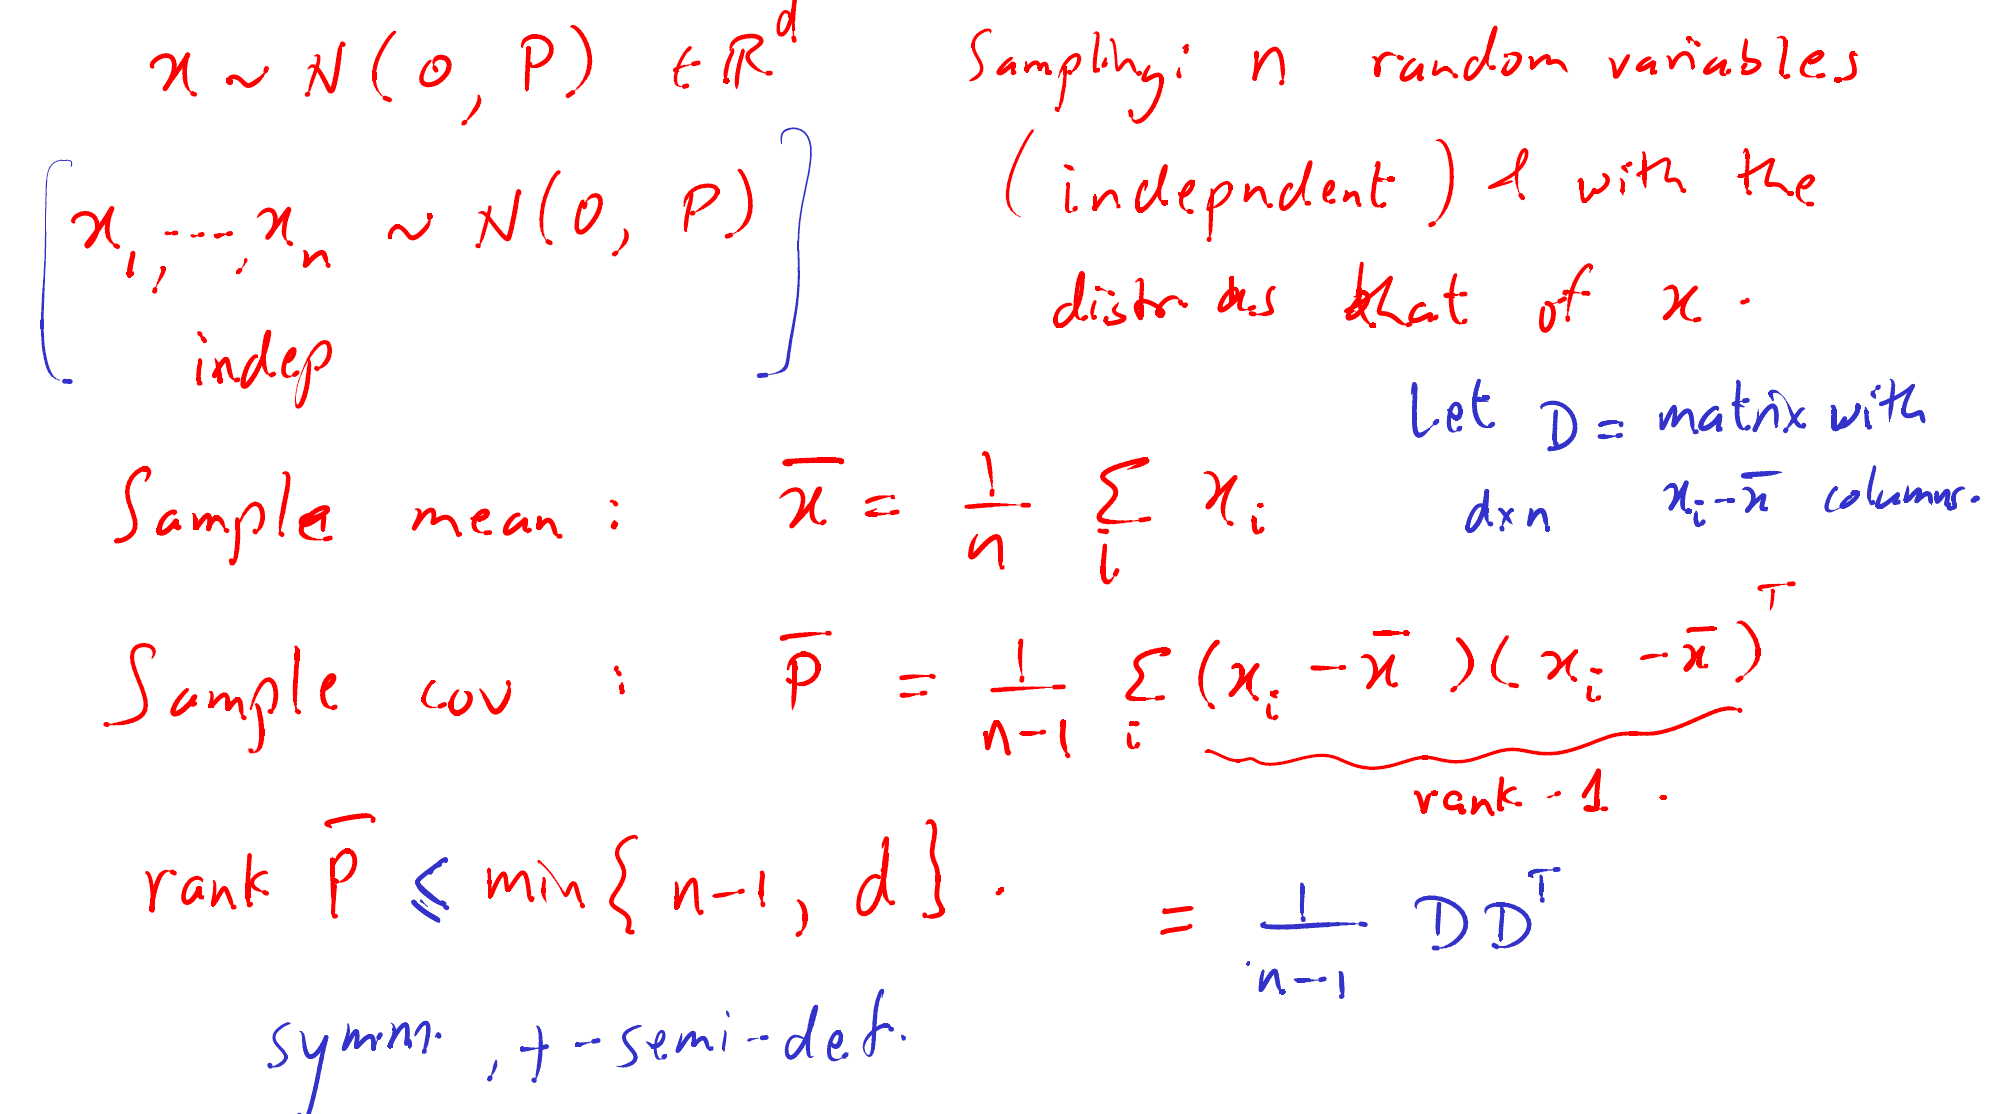 x ~ N(0, P) ∈ ℝ^d
[x_1, ---, x_n ~ N(0, P)
indep]
Sampling: n random variables
(indepndent) & with the
distr as that of x.
Let D = matrix with
d×n x_i - x̄ columns.
Sample mean : x̄ = 1/n Σ_i x_i
Sample cov : P̄ = 1/(n-1) Σ_i (x_i - x̄)(x_i - x̄)^T
rank-1.
rank P̄ ≤ min{n-1, d}.
= 1/(n-1) D D^T
symm. , +-semi-def.